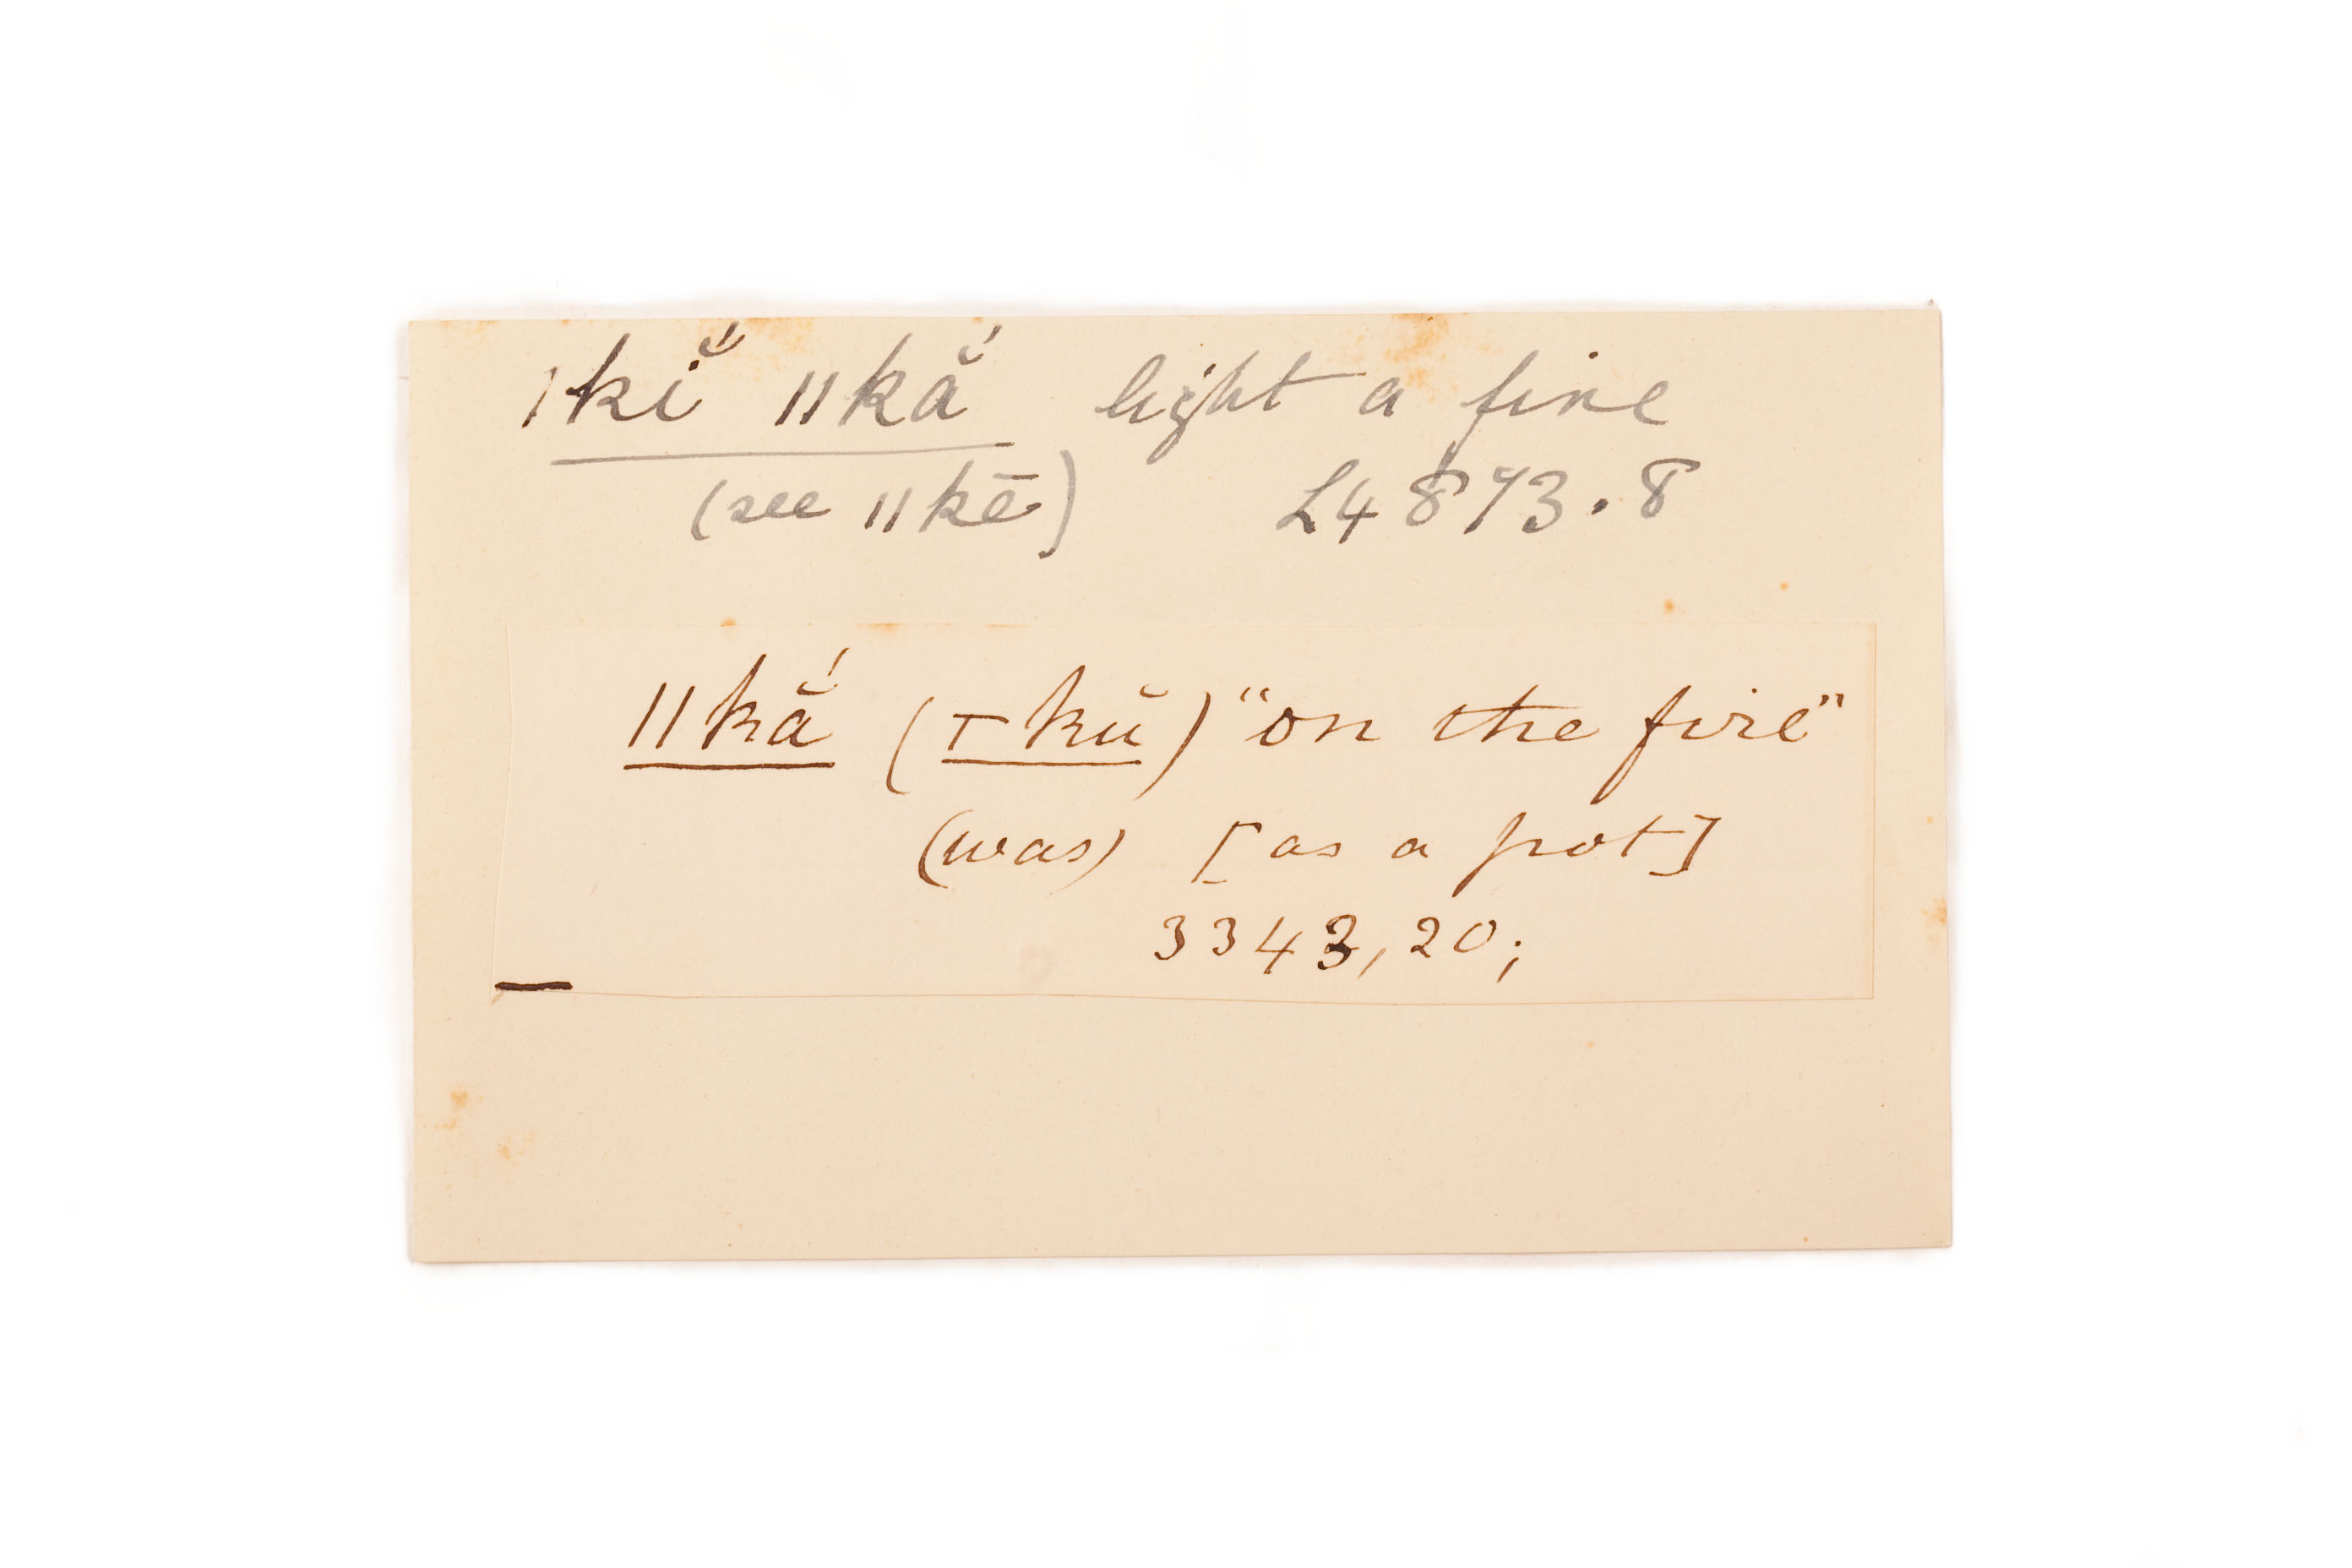 ǀkĭ́ ǁkắ light a fire
(see ǁkē) L4873.8
ǁkắ (⊤kŭ) "on the fire"
(was) [as a pot]
3343,20;